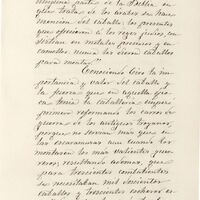 ninguna parte de la Biblia, en
que trata de los árabes se hace
mención del caballo; los presentes
que ofrecieron á los reyes judíos, con-
sistían en metales preciosos y en
camellos; nunca les dieron caballos
para montar."
Conociendo Ciro la im-
portancia y valor del caballo y
la fuerza que en aquella épo-
ca tenía la caballería, empezó
primero reformando los carros de
guerra de los antiguos troyanos,
porque no servían mas que en
las escaramuzas aun cuando los
montaran los mas valientes guer-
reros; resultando además, que
para trescientos combatientes
se necesitaban mil doscientos
caballos y trescientos cocheros es-